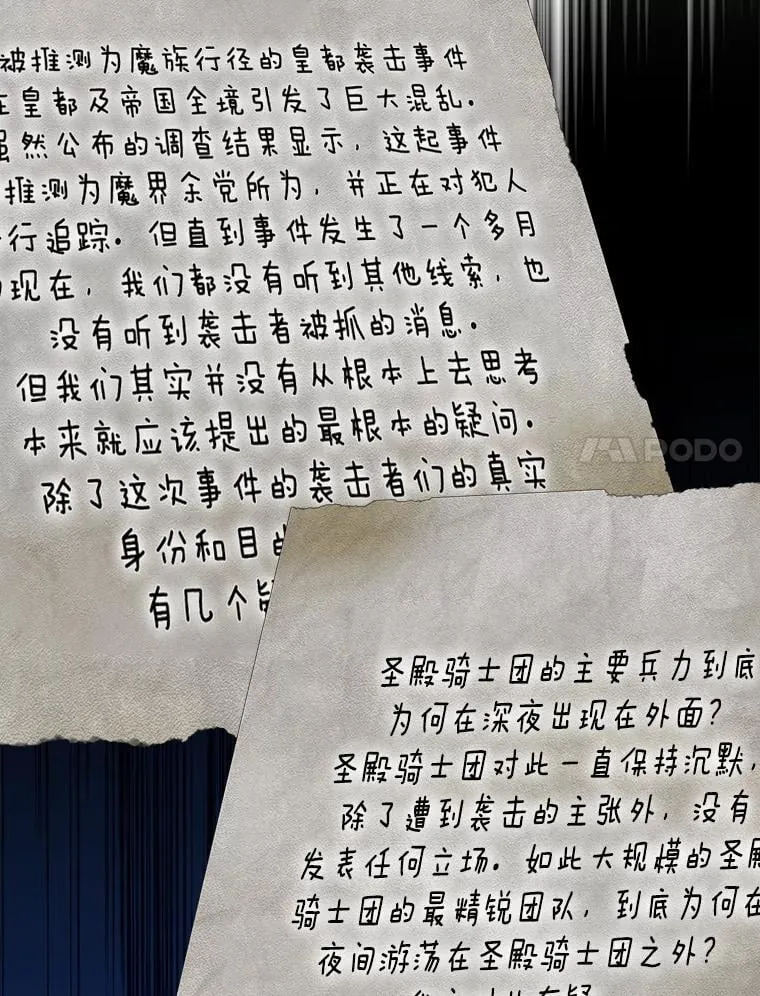 被推测为魔族行径的皇都袭击事件
在皇都及帝国全境引发了巨大混乱。
虽然公布的调查结果显示，这起事件
推测为魔界余党所为，并正在对犯人
行追踪。但直到事件发生了一个多月
现在，我们都没有听到其他线索，也
没有听到袭击者被抓的消息。
但我们其实并没有从根本上去思考
本来就应该提出的最根本的疑问。
除了这次事件的袭击者们的真实
身份和目的
有几个疑
PODO
圣殿骑士团的主要兵力到底
为何在深夜出现在外面？
圣殿骑士团对此一直保持沉默，
除了遭到袭击的主张外，没有
发表任何立场。如此大规模的圣殿
骑士团的最精锐团队，到底为何在
夜间游荡在圣殿骑士团之外？